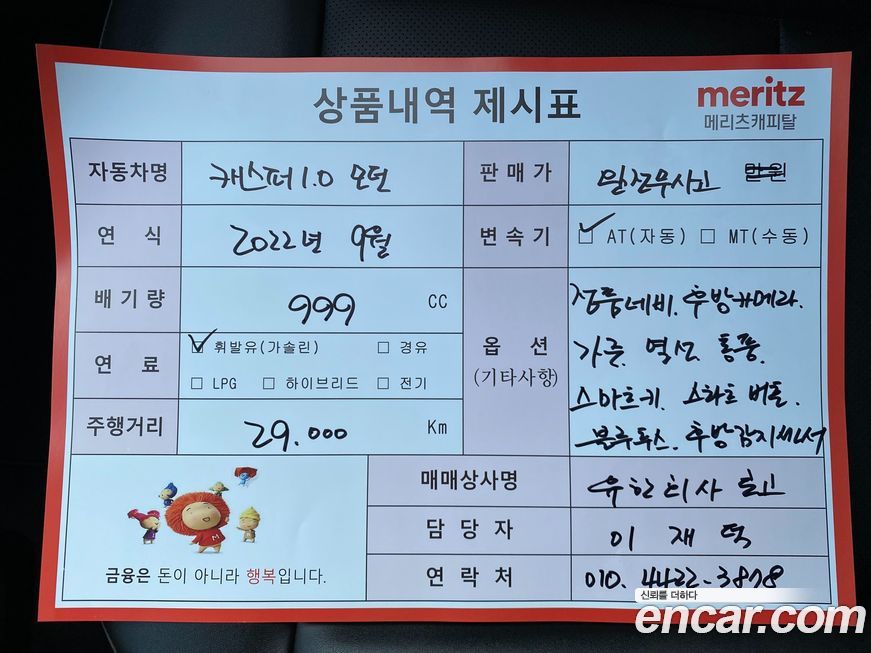 상품내역 제시표
meritz
메리츠캐피탈
자동차명 캐스퍼 1.0 모던
판매가 완전무사고 만원
연식 2022년 9월
변속기 ☑ AT(자동) ☐ MT(수동)
배기량 999 CC
연료 ☑ 휘발유(가솔린) ☐ 경유
☐ LPG ☐ 하이브리드 ☐ 전기
주행거리 29.000 Km
옵션
(기타사항)
정품네비. 후방카메라.
가죽. 열선 통풍.
스마트키. 스타트 버튼.
블루투스. 후방감지센서
매매상사명 유한회사
담당자 이재덕
연락처 010. 4422-3878
M
금융은 돈이 아니라 행복입니다.
신뢰를 더하다
encar.com